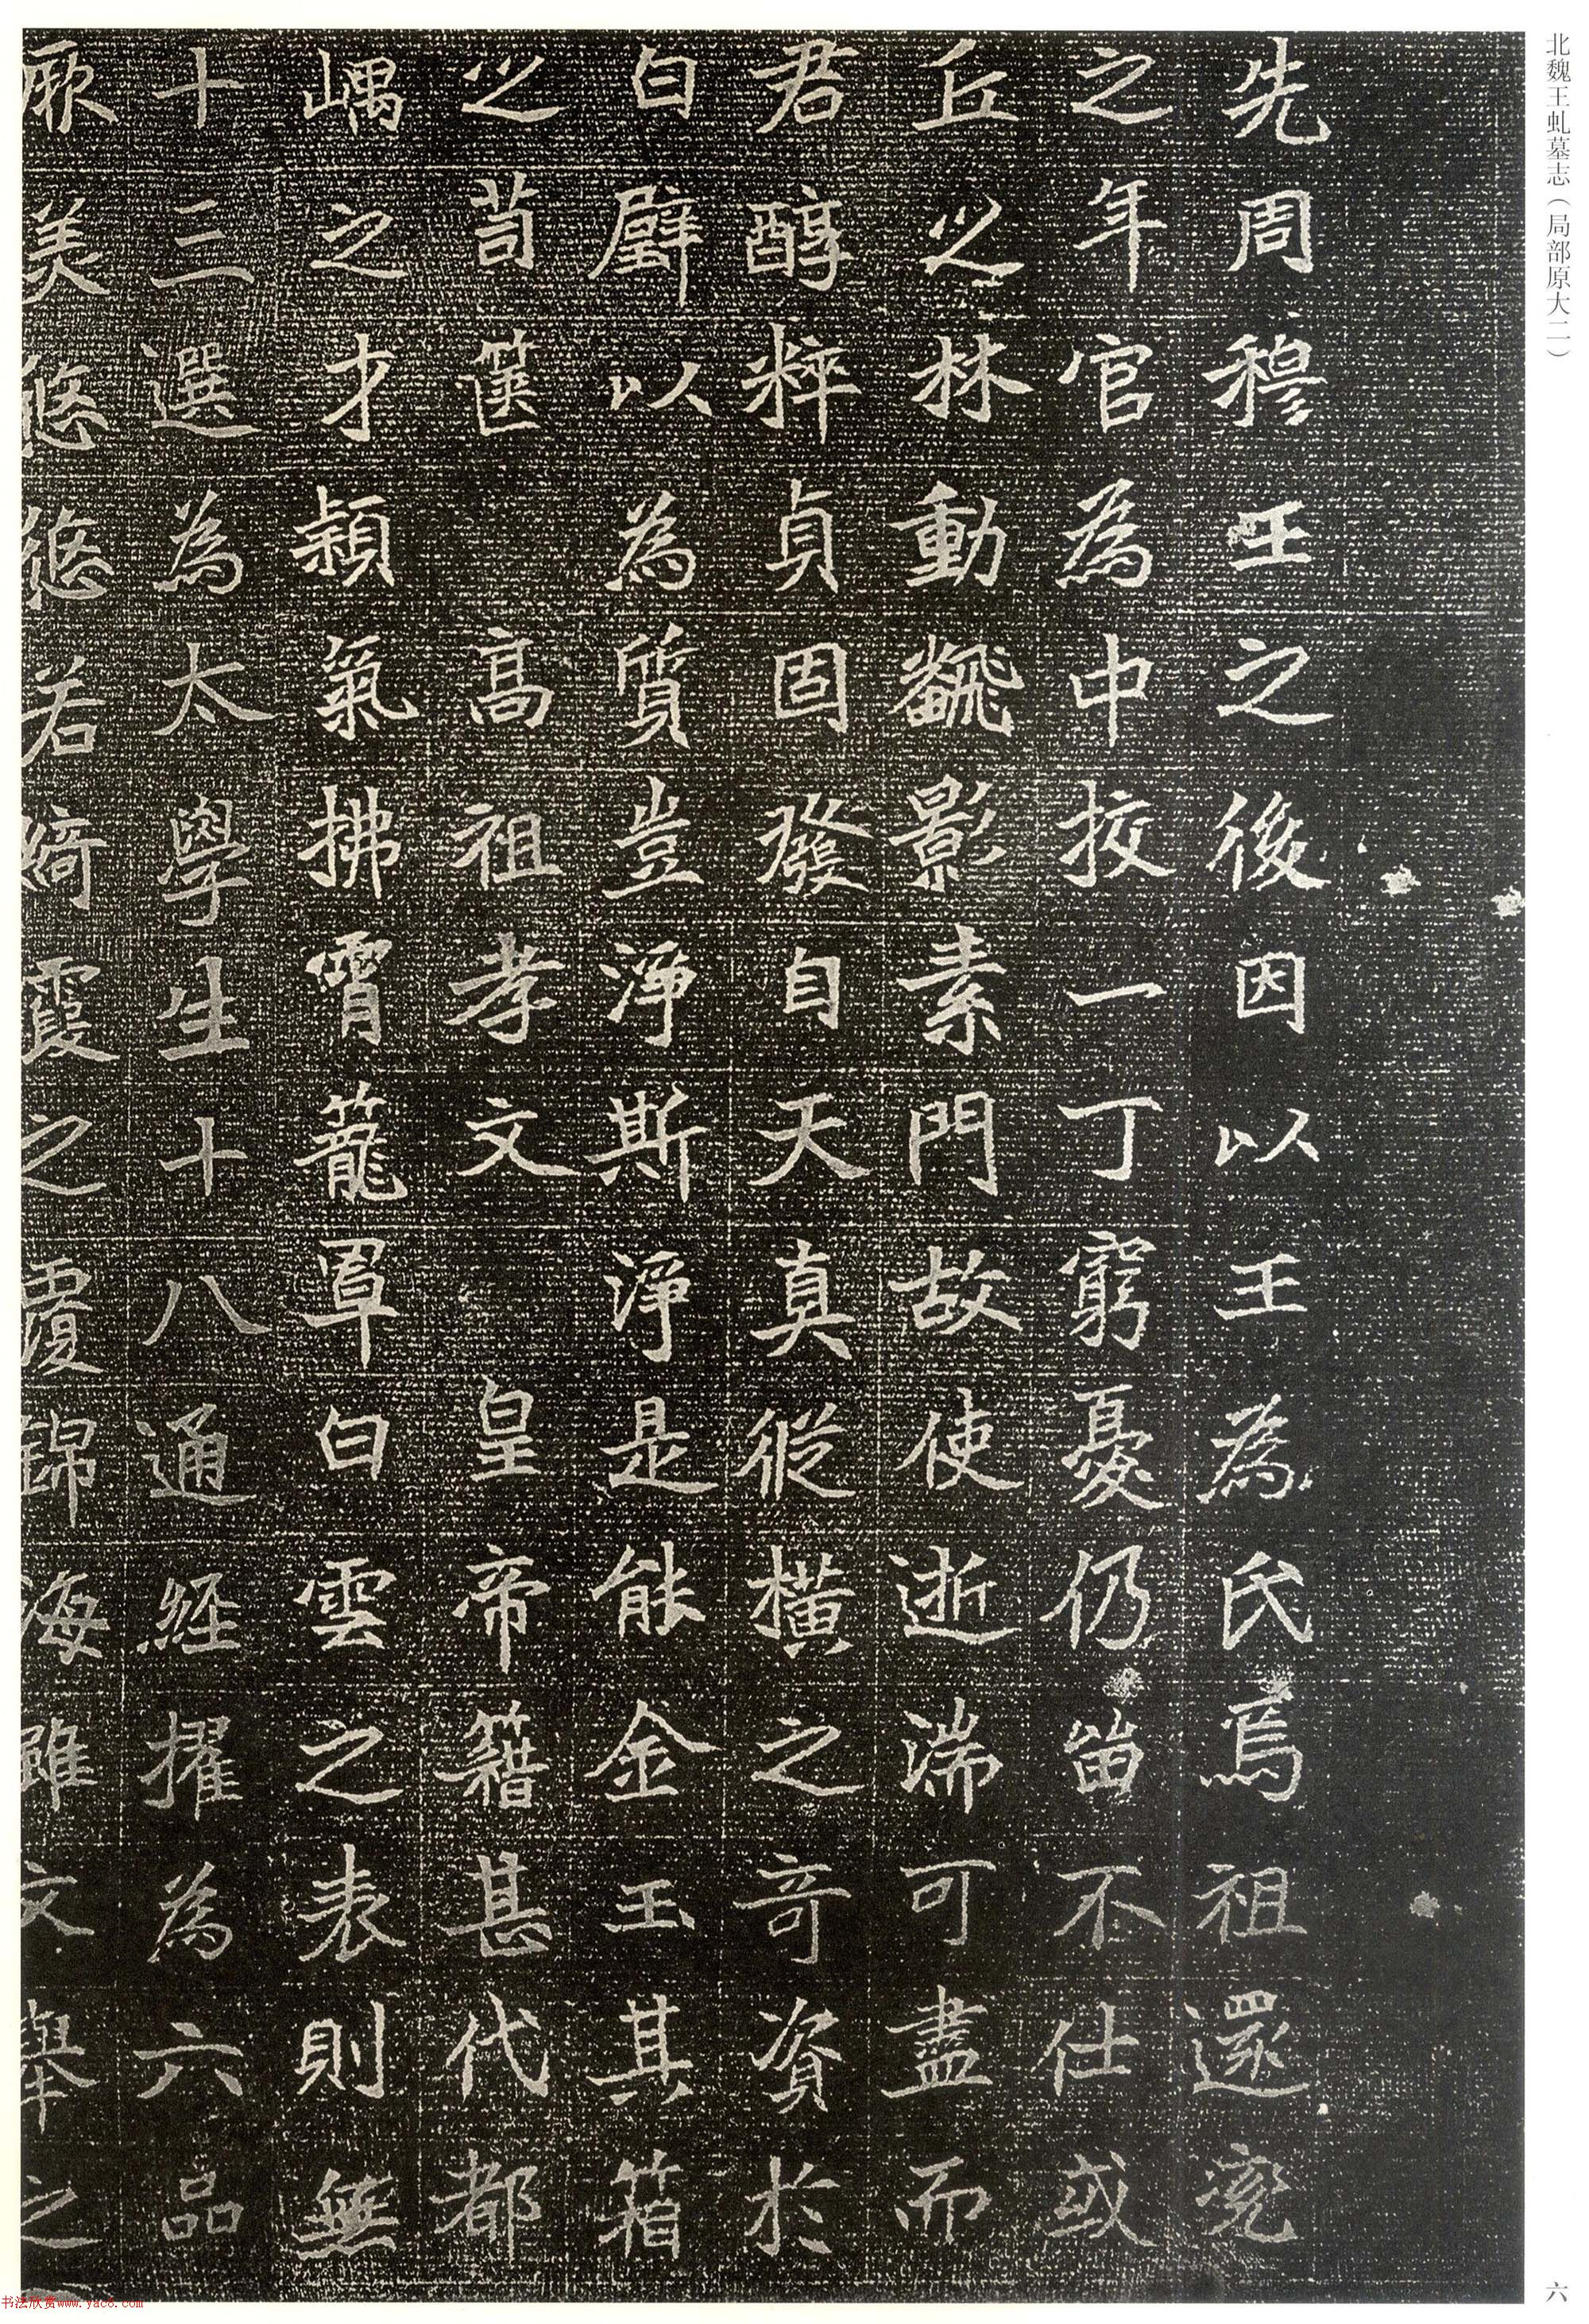 北魏王虬墓志（局部原大二）
先周穆王之後因以王為氏焉祖還兖
之年官為中挍一丁窮憂仍不仕或
丘之林動影素門故使逝湍可盡而
君醇粹貞固發自天真縱橫之奇資於
白璧以為質豈淨斯淨是能金玉其箱
之苟篋高祖孝文皇帝籍甚代都
嵎之才穎氣拂霄籠罩白雲之表則無
十三選為太學生十八通經擢為六品
厥美悠悠若綺霞之覆錦海雖文舉之
六
书法欣赏www.yac8.com